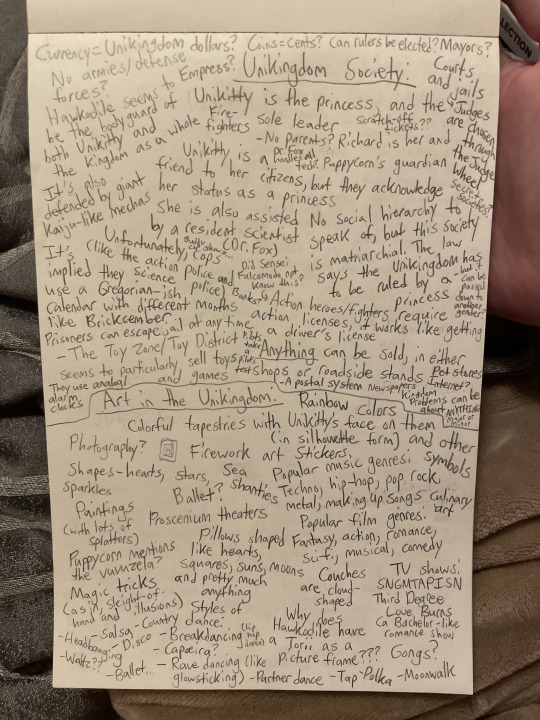 LECTION
Currency = Unikingdom dollars? Coins = cents? Can rulers be elected? Mayors?
No armies/defense forces?
Empress?
Unikingdom Society:
Courts, and jails
Judges are chosen through the Judge Wheel
Secret societies?
Hawkodile seems to be the bodyguard of both Unikitty and the kingdom as a whole
Fire-fighters
Scratch-off tickets??
Unikitty is the princess, and the sole leader
-No parents? Richard is her and Puppycorn's guardian
Dr. Fox handles all tech?
Unikitty is a friend to her citizens, but they acknowledge her status as a princess
It's also defended by giant Kaiju-like mechas
She is also assisted by a resident scientist (Dr. Fox)
No social hierarchy to speak of, but this society is matriarchial. The law says the Unikingdom has to be ruled by a princess
-but it can be passed down to another gender?
Unfortunately, cops (like the action police and science police)
Did Sensei Falcamodo not know this?
Banks?
It's implied they use a Gregorian-ish calendar with different months like Brickcember
Action heroes/fighters require action licenses, it works like getting a driver's license
Prisoners can escape jail at any time
-The Toy Zone/Toy District seems to particularly, sell toys and games
Pilots take a pilot's test
Anything can be sold, in either shops or roadside stands
Pet stores
Internet?
-A postal system
Newspapers
Kingdom Problems can be about ANYTHING
Major or minor
They use analog alarm clocks
Art in the Unikingdom:
Rainbow colors
Colorful tapestries with Unikitty's face on them
(in silhouette form) and other symbols
Photography?
Firework art
Stickers.
Shapes-hearts, stars, sparkles
Sea shanties
Popular music genres: Techno, hip-hop, pop, rock, metal, making up songs
Culinary art
Ballet?
Paintings (with lots of splatters)
Proscenium theaters
Popular film genres: Fantasy, action, romance, sci-fi, musical, comedy
Puppycorn mentions the vuvuzela?
Pillows shaped like hearts, squares, suns, moons and pretty much anything
Couches are cloud-shaped
TV shows:
SNGMTAPISN
Third Degree Love Burns
(a Bachelor-like romance show
Magic tricks (as in, sleight-of-hand and illusions)
Styles of dance:
-Country
-Salsa
-Disco
-Headbanging
-Waltz??
-Breakdancing (hip hop dance)
-Capoeira?
-Ballet...
-Rave dancing (like glowsticking)
Why does Hawkodile have a Torii as a Picture frame???
Gongs?
-Partner dance
-Tap
-Polka
-Moonwalk